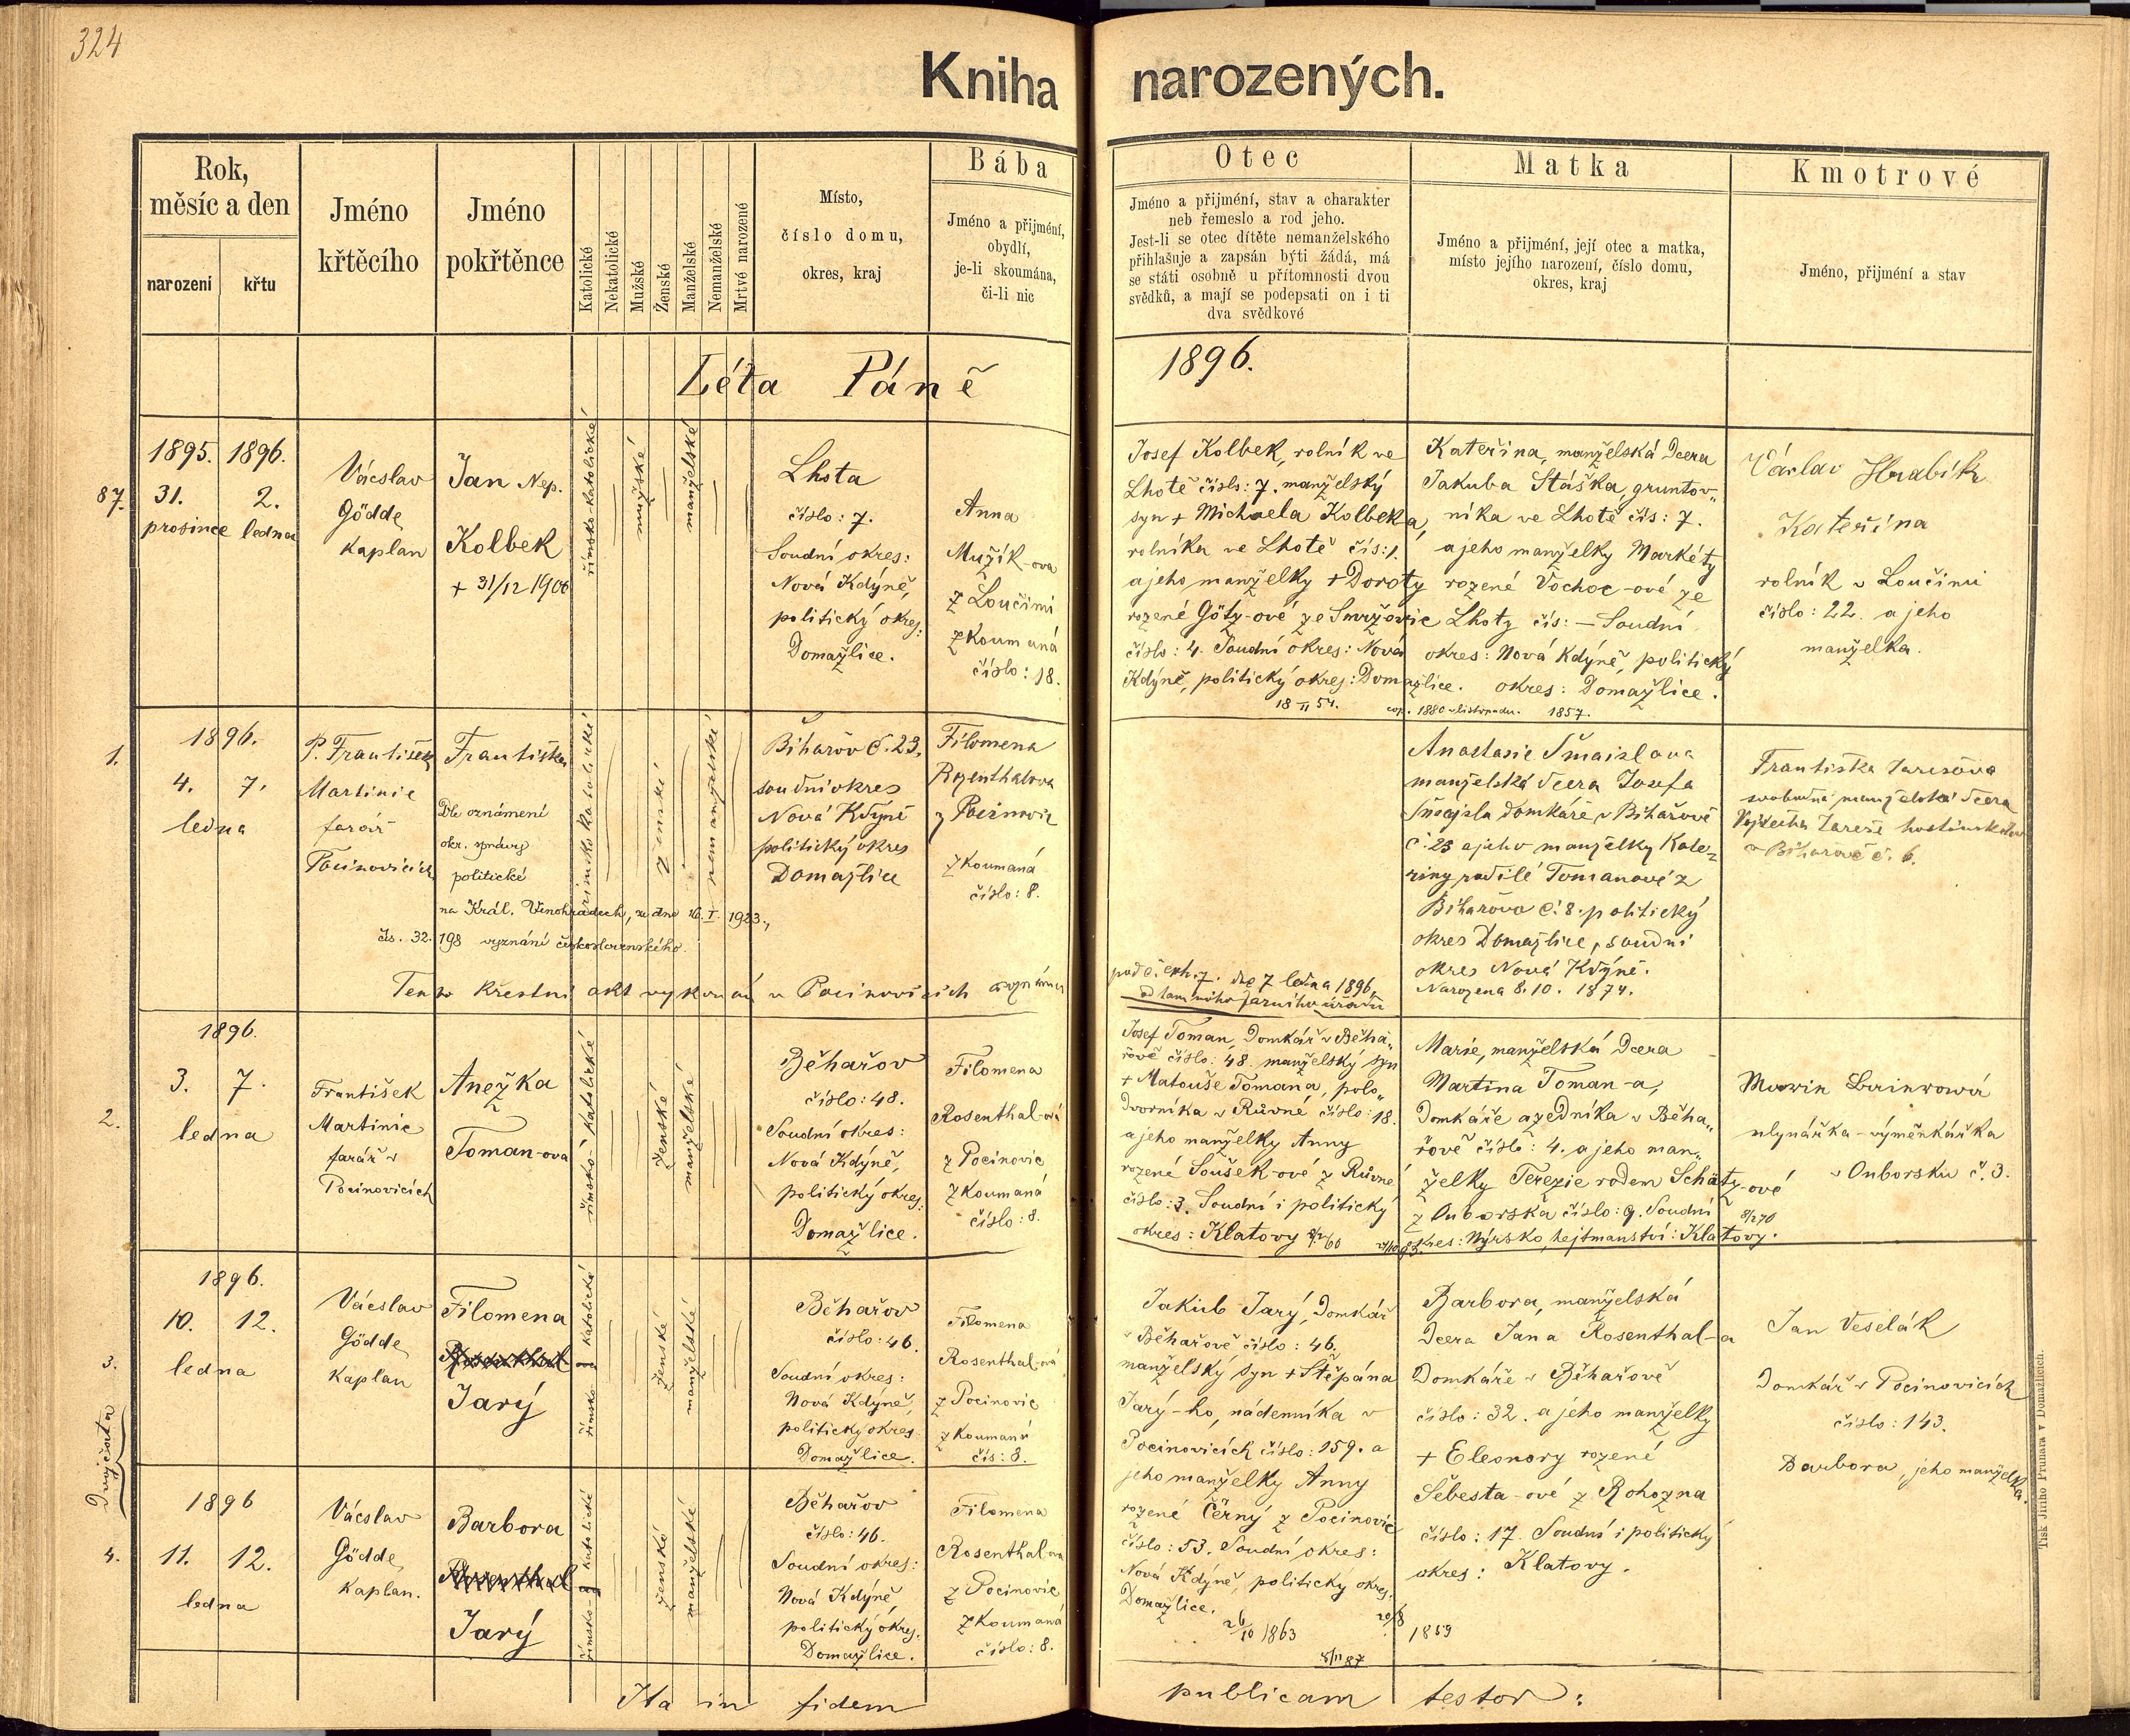 324
Kniha narozených.
Rok,
měsíc a den
narození
křtu
Jméno
křtěcího
Jméno
pokřtěnce
Katolické
Nekatolické
Mužské
Ženské
Manželské
Nemanželské
Mrtvé narozené
Místo,
číslo domu,
okres, kraj
Bába
Jméno a přijmení,
obydlí,
je-li skoumána,
či-li nic
Otec
Jméno a přijmení, stav a charakter
neb řemeslo a rod jeho.
Jest-li se otec dítěte nemanželského
přihlašuje a zapsán býti žádá, má
se státi osobně u přítomnosti dvou
svědků, a mají se podepsati on i ti
dva svědkové
Matka
Jméno a přijmení, její otec a matka,
místo jejího narození, číslo domu,
okres, kraj
Kmotrové
Jméno, přijmení a stav
Léta Páně 1896.
87.
1895. 1896.
31. 2.
prosince ledna
Václav
Gödde
Kaplan
Jan Nep.
Kolbek
+ 31/12 1906
římsko-katolické
mužské
manželské
Lhota
číslo: 7.
Soudní okres:
Nová Kdýně,
politický okres:
Domažlice.
Anna
Mužík-ova
z Loučimi
zkoumaná
číslo: 18.
Josef Kolbek, rolník ve
Lhotě číslo: 7. manželský
syn + Michaela Kolbeka,
rolníka ve Lhotě čís: 1.
a jeho manželky + Doroty
rozené Götz-ové ze Smržovic
číslo: 4. Soudní okres: Nová
Kdýně, politický okres: Domažlice.
18 II 54.
cop. 1880 listopadu.
Kateřina, manželská dcera
Jakuba Stáška, gruntov-
níka ve Lhotě čís: 7.
a jeho manželky Markéty
rozené Vochoc-ové ze
Lhoty čís: — Soudní
okres: Nová Kdýně, politický
okres: Domažlice.
1857.
Václav Hrabík
Kateřina
rolník v Loučimi
číslo: 22. a jeho
manželka.
1.
1896.
4. 7.
ledna
P. František
Martinic
farář
Pocinovicích
Františka
Dle oznámení
okr. správy
politické
na Král. Vinohradech, ze dne 16. I. 1923.,
čís. 32.198 vyznání československého.
římsko katolické
ženské
nemanželské
Biharov č. 23,
soudní okres
Nová Kdýně
politický okres
Domažlice
Filomena
Rozenthalova
z Pocinovic
zkoumaná
číslo: 8.
Tento křestní akt vykonán v Pocinovicích
pod č. exh. 7. dne 7 ledna 1896,
od tamního farního úřadu
Anastasie Šmaislova
manželská dcera Josefa
Šmajsla domkáře v Bihařově
č. 23 a jeho manželky Kate-
řiny rodilé Tomanové z
Biharova č. 8. politický
okres Domažlice, soudní
okres Nová Kdýně.
Narozena 8. 10. 1874.
Františka Jarešova
svobodná manželská dcera
Vojtěcha Jareše hostinského
v Biharově č. 6.
2.
1896.
3. 7.
ledna
František
Martinic
farář v
Pocinovicích
Anežka
Toman-ova
římsko-katolické
ženské
manželské
Běhařov
číslo: 48.
Soudní okres:
Nová Kdýně,
politický okres:
Domažlice.
Filomena
Rosenthal-ová
z Pocinovic
zkoumaná
číslo: 8.
Josef Toman, Domkář v Běha-
řově číslo: 48. manželský syn
+ Matouše Tomana, polo-
dvorníka v Růvné číslo: 18.
a jeho manželky Anny
rozené Soušek-ové z Růvné
číslo: 3. Soudní i politický
okres: Klatovy
Marie, manželská Dcera
Martina Toman-a,
Domkáře a zedníka v Běha-
řově číslo: 4. a jeho man-
želky Terezie rodem Schätz-ové
z Ouborska číslo: 9. Soudní
okres: Nýrsko, hejtmanství: Klatovy.
mlynářka-výměnkářka
v Ouborsku č. 3.
3.
Dvojčata
1896.
10. 12.
ledna
Václav
Gödde
Kaplan
Filomena
Rosenthal
Jarý
římsko katolické
ženské
manželské
Běhařov
číslo: 46.
Soudní okres:
Nová Kdýně,
politický okres
Domažlice.
Filomena
Rosenthal-ová
z Pocinovic
zkoumaná
čís: 8.
Jakub Jarý, Domkář
v Běhařově číslo: 46.
manželský syn + Štěpána
Jarý-ho, nádenníka v
Pocinovicích číslo: 159. a
jeho manželky Anny
rozené Černý z Pocinovic
číslo: 53. Soudní okres:
Nová Kdýně, politický okres:
Domažlice.
26/10 1863
Barbora, manželská
Dcera Jana Rosenthal-a
Domkáře v Běhařově
číslo: 32. a jeho manželky
+ Eleonory rozené
Šebesta-ové z Rohozna
číslo: 17. Soudní i politický
okres: Klatovy.
20/8 1859
5/11 87
Jan Veselák
Domkář v Pocinovicích
číslo: 143.
Barbora, jeho manželka.
4.
1896
11. 12.
ledna
Václav
Gödde
Kaplan.
Barbora
Rosenthal
Jarý
římsko-katolické
ženské
manželské
Běhařov
číslo: 46.
Soudní okres:
Nová Kdýně,
politický okres.
Domažlice.
Filomena
Rosenthal-ova
z Pocinovic
zkoumaná
číslo: 8.
Ita in fidem publicam testor:
Tisk Jiřího Prunara v Domažlicích.